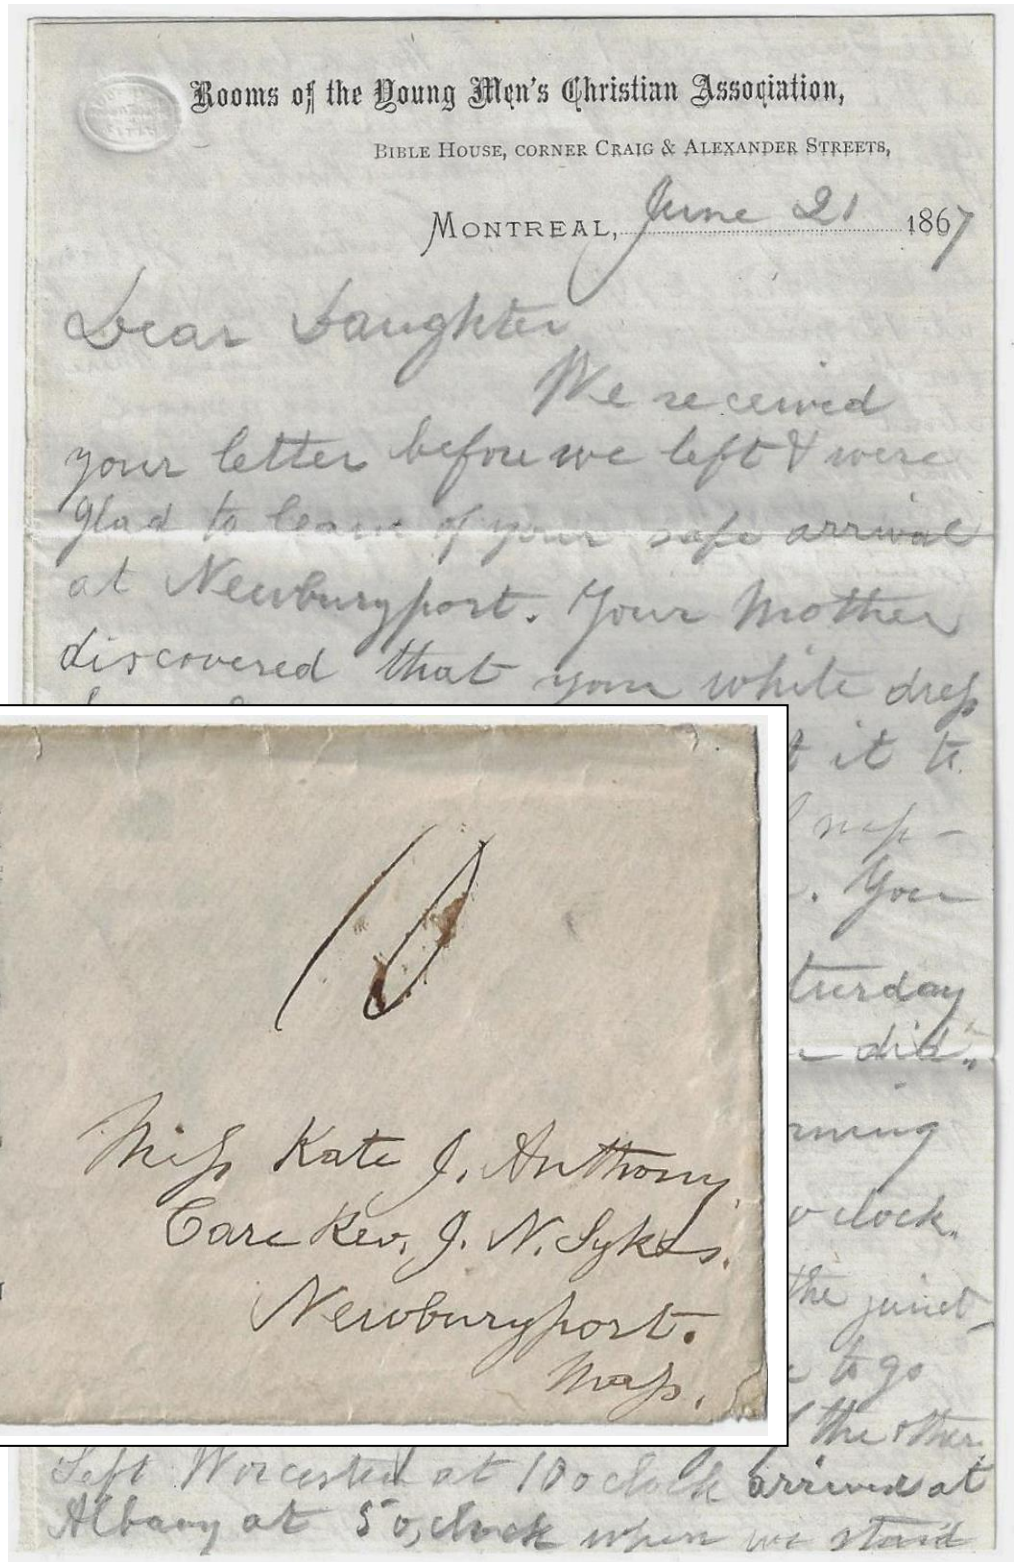 Rooms of the Young Men's Christian Association,
BIBLE HOUSE, CORNER CRAIG & ALEXANDER STREETS,
MONTREAL, June 21 1867
Dear Daughter
We received
your letter before we left & were
glad to learn of your safe arrival
at Newburyport. Your Mother
discovered that your white dress
it to
. You
did.
o clock.
the junct-
to go
the other.
Left Worcester at 10 o clock arrived at
Albany at 5 o,clock when we staid
10
Miss Kate J. Anthony.
Care Rev. J. N. Sykes.
Newburyport.
Mass.